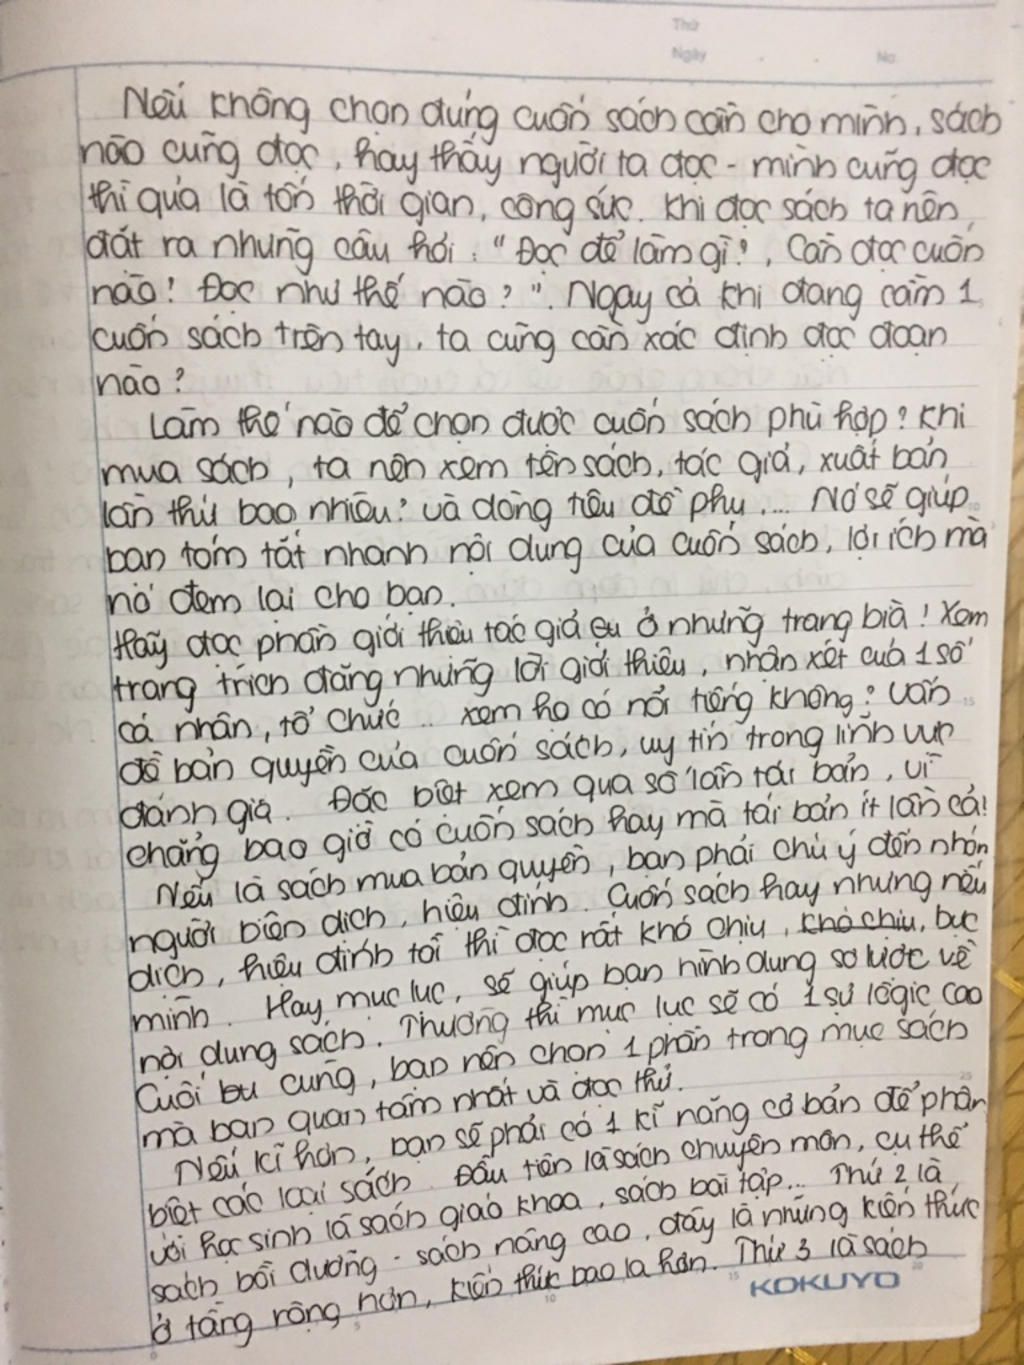 Thứ
Ngày
No
Nếu không chọn đúng cuốn sách cần cho mình, sách
nào cũng đọc, hay thấy người ta đọc - mình cũng đọc
thì quả là tốn thời gian, công sức. Khi đọc sách ta nên
đặt ra những câu hỏi: "Đọc để làm gì?, Cần đọc cuốn
nào? Đọc như thế nào?". Ngay cả khi đang cầm 1
cuốn sách trên tay, ta cũng cần xác định đọc đoạn
nào?
Làm thế nào để chọn được cuốn sách phù hợp? Khi
mua sách, ta nên xem tên sách, tác giả, xuất bản
lần thứ bao nhiêu? và dòng tiêu đề phụ.... Nó sẽ giúp
bạn tóm tắt nhanh nội dung của cuốn sách, lợi ích mà
nó đem lại cho bạn.
Hãy đọc phần giới thiệu tác giả ở những trang bìa! Xem
trang trích đăng những lời giới thiệu, nhận xét của 1 số
cá nhân, tổ chức .. xem họ có nổi tiếng không? Vấn
đề bản quyền của cuốn sách, uy tín trong lĩnh vực
đánh giá. Đặc biệt xem qua số lần tái bản, vì
chẳng bao giờ có cuốn sách hay mà tái bản ít lần cả!
Nếu là sách mua bản quyền, bạn phải chú ý đến nhóm
người biên dịch, hiệu đính. Cuốn sách hay nhưng nếu
dịch, hiệu đính tồi thì đọc rất khó chịu, khó chịu, bực
mình. Hay mục lục, sẽ giúp bạn hình dung sơ lược về
nội dung sách. Thường thì mục lục sẽ có 1 sự lôgic cao
Cuối cùng, bạn nên chọn 1 phần trong mục sách
mà bạn quan tâm nhất và đọc thử.
Nếu kĩ hơn, bạn sẽ phải có 1 kĩ năng cơ bản để phân
biệt các loại sách. Đầu tiên là sách chuyên môn, cụ thể
với học sinh là sách giáo khoa, sách bài tập... Thứ 2 là
sách bồi dưỡng - sách nâng cao, đây là những kiến thức
ở tầng rộng hơn, kiến thức bao la hơn. Thứ 3 là sách
KOKUYO